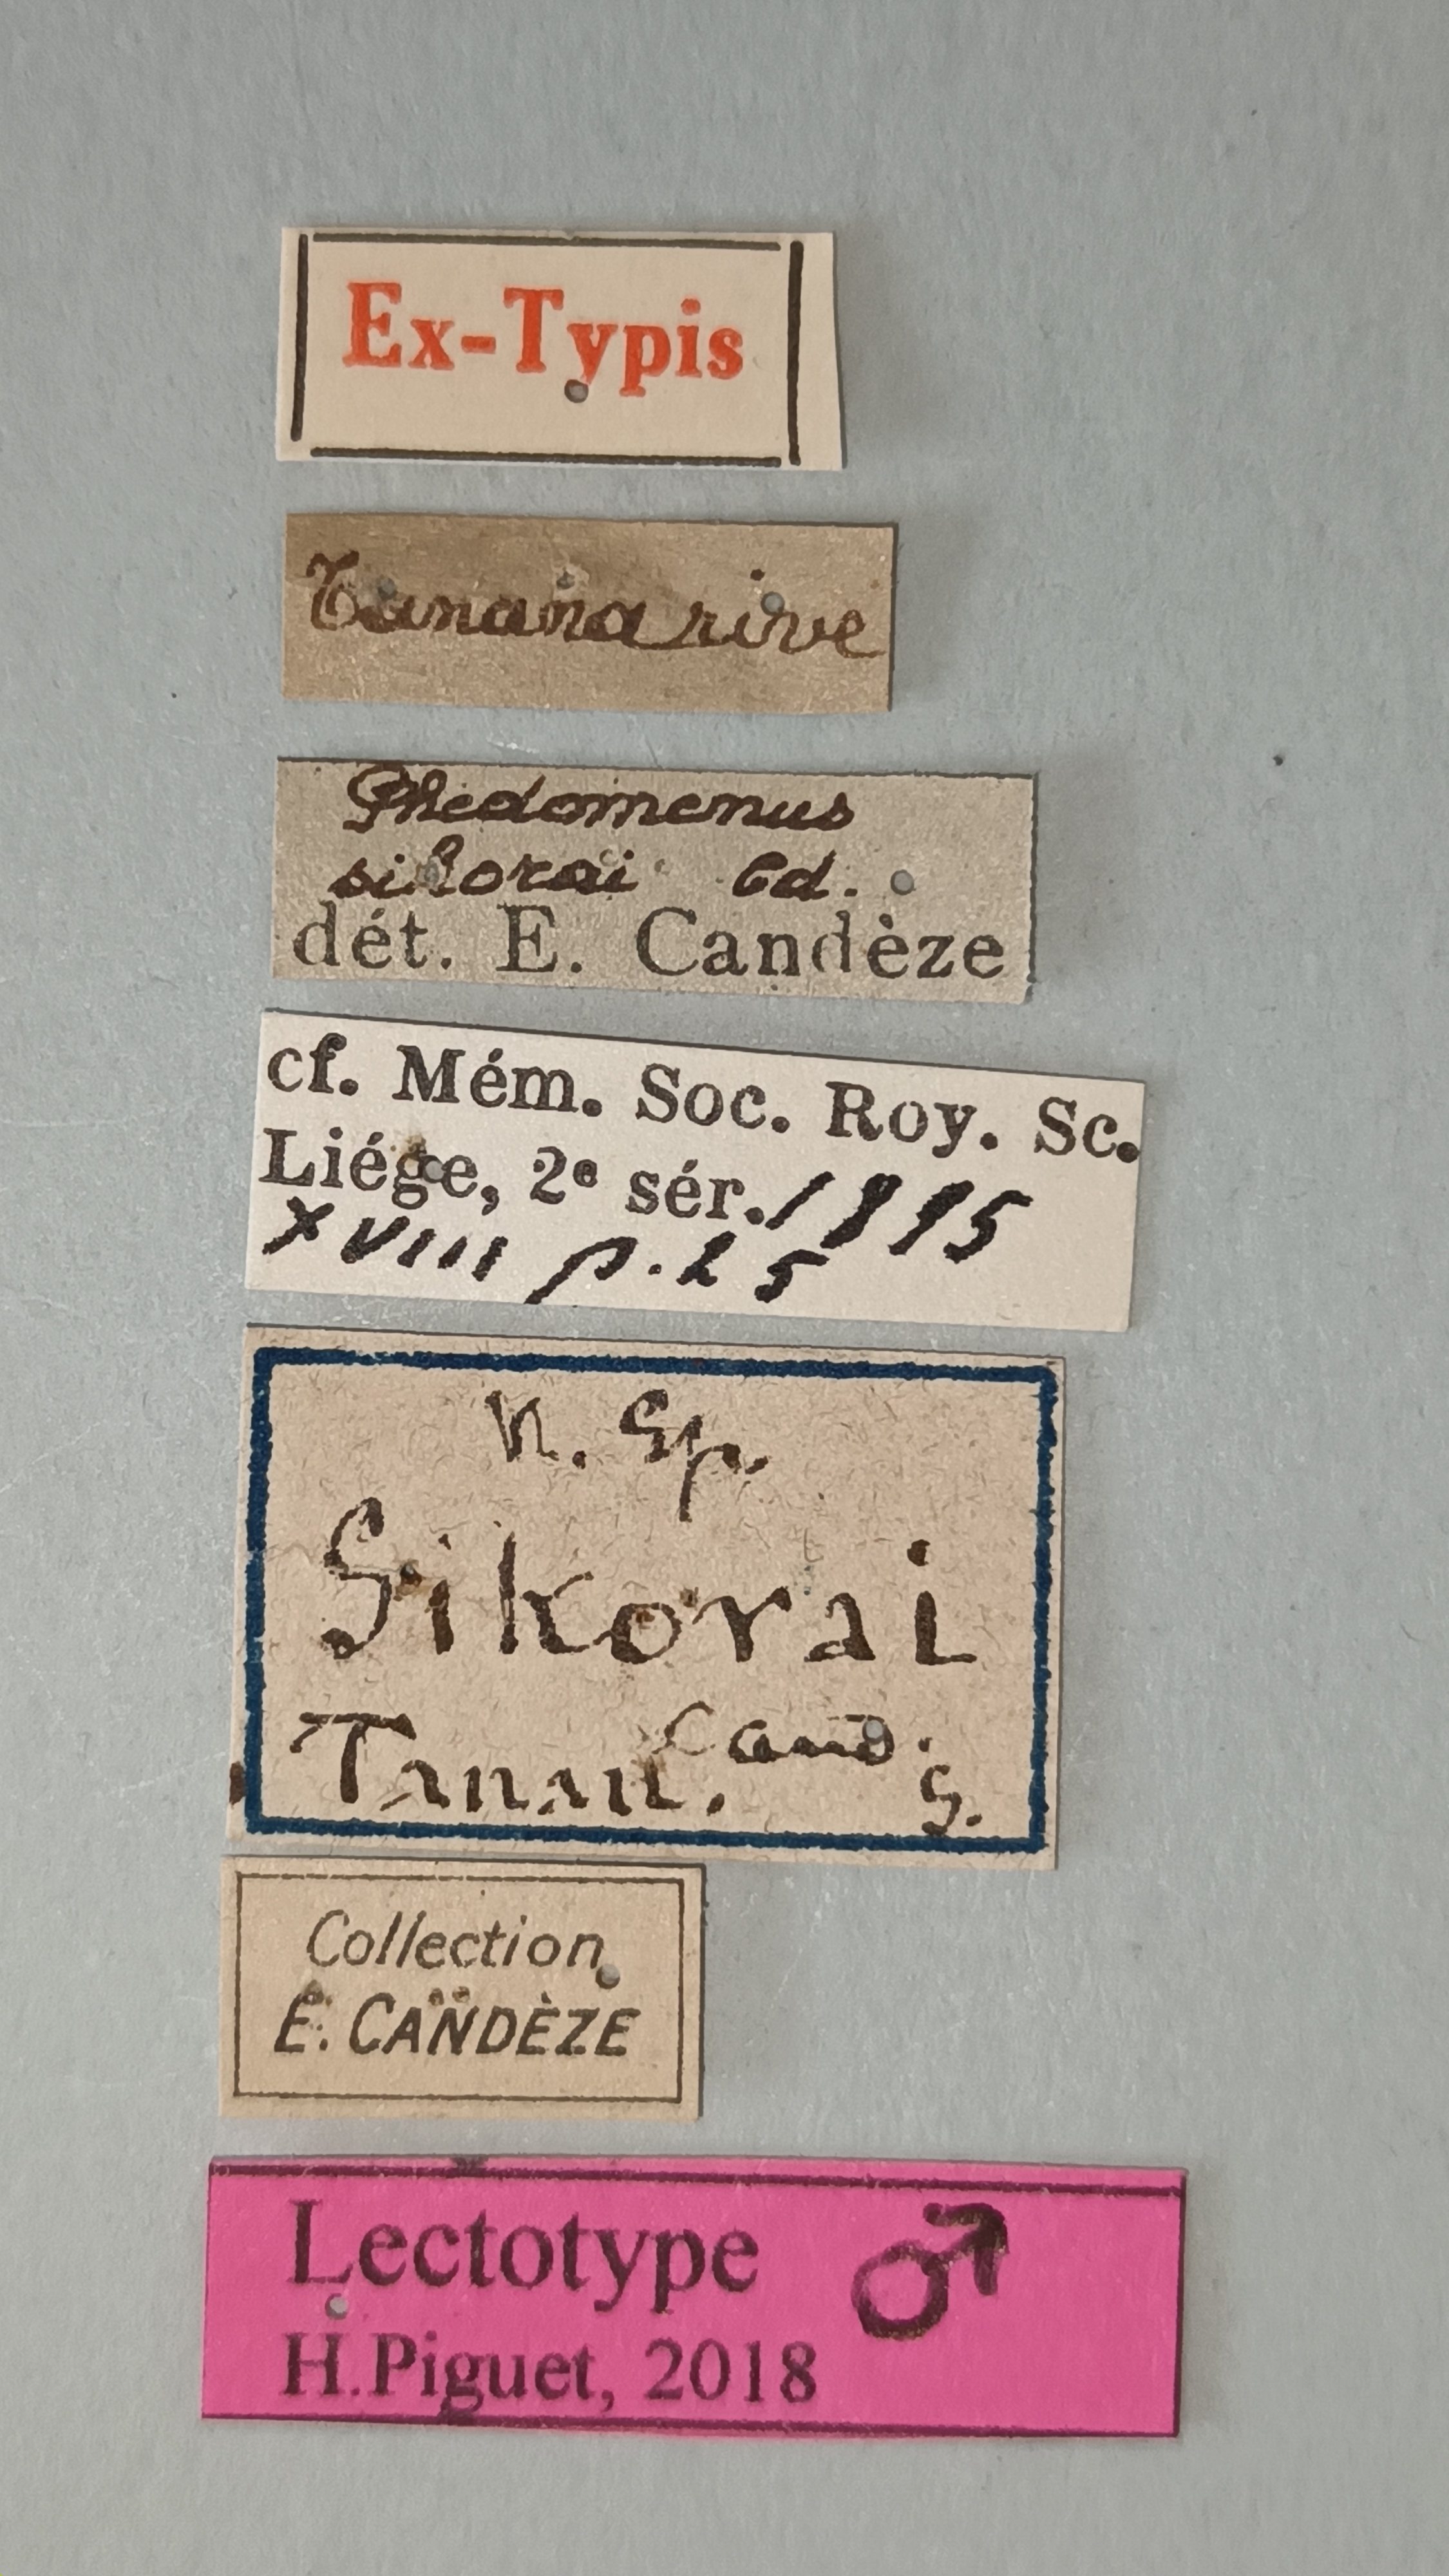 Ex-Typis
Tananarive
Phedomenus
sikorai Cd.
dét. E. Candèze
cf. Mém. Soc. Roy. Sc.
Liége, 2e sér. 1895
XVIII p. 25
n. sp.
Sikorai
Cand.
Tanan. S.
Collection
E. CANDÈZE
Lectotype ♂
H.Piguet, 2018